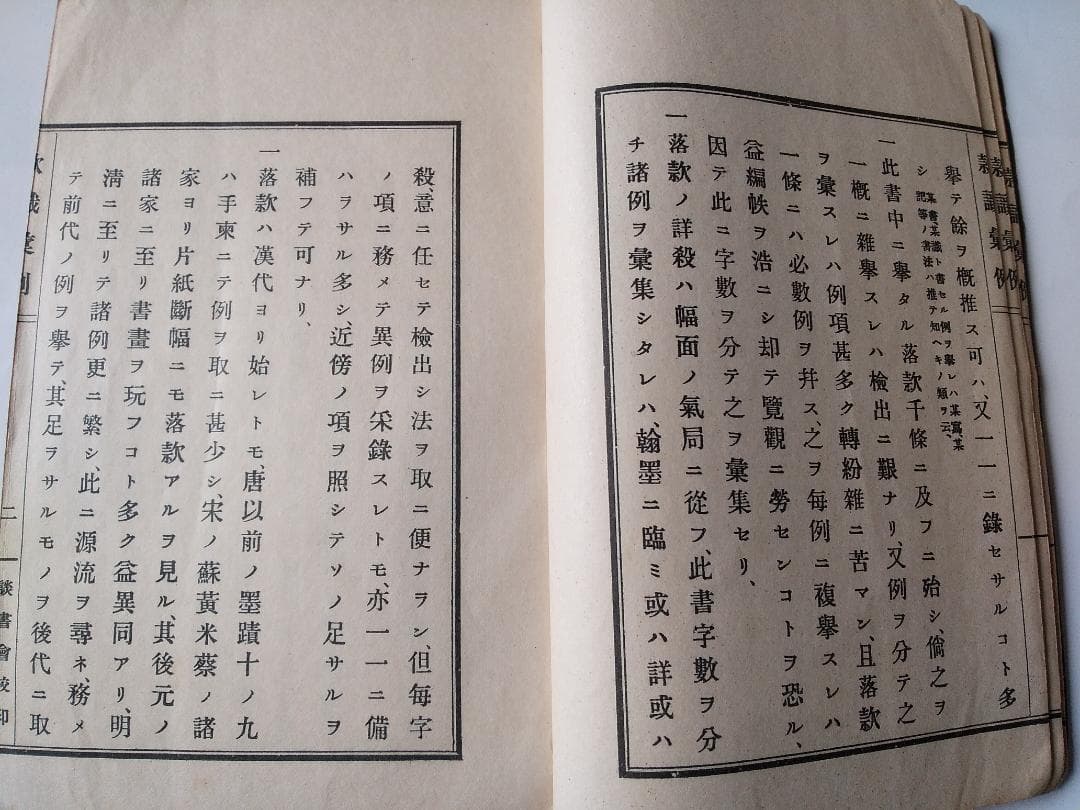 擧テ餘ヲ概推ス可ハ、又一一ニ錄セサルコト多
シ
某書某識ト書セル例ヲ擧レハ某寫某
記等ノ書法ハ推テ知ヘキノ類ヲ云、
一此書中ニ擧タル落款千條ニ及フニ殆シ、倘之ヲ
一概ニ雜擧スレハ檢出ニ艱ナリ、又例ヲ分テ之
ヲ彙スレハ例項甚多ク轉紛雜ニ苦マン、且落款
一條ニハ必數例ヲ幷ス、之ヲ每例ニ複擧スレハ
益編帙ヲ浩ニシ却テ覽觀ニ勞センコトヲ恐ル、
因テ此ニ字數ヲ分テ之ヲ彙集セリ、
一落款ノ詳殺ハ幅面ノ氣局ニ從フ、此書字數ヲ分
チ諸例ヲ彙集シタレハ、翰墨ニ臨ミ或ハ詳或ハ
殺、意ニ任セテ檢出シ法ヲ取ニ便ナラン、但每字
ノ項ニ務メテ異例ヲ采錄スレトモ、亦一一ニ備
ハヲサル多シ、近傍ノ項ヲ照シテソノ足サルヲ
補フテ可ナリ、
一落款ハ漢代ヨリ始レトモ、唐以前ノ墨蹟十ノ九
ハ手柬ニテ例ヲ取ニ甚少シ、宋ノ蘇黃米蔡ノ諸
家ヨリ片紙斷幅ニモ落款アルヲ見ル、其後元ノ
諸家ニ至リ書畫ヲ玩フコト多ク益異同アリ、明
淸ニ至リテ諸例更ニ繁シ、此ニ源流ヲ尋ネ、務メ
テ前代ノ例ヲ擧テ、其足ヲサルモノヲ後代ニ取
二
談書會校印